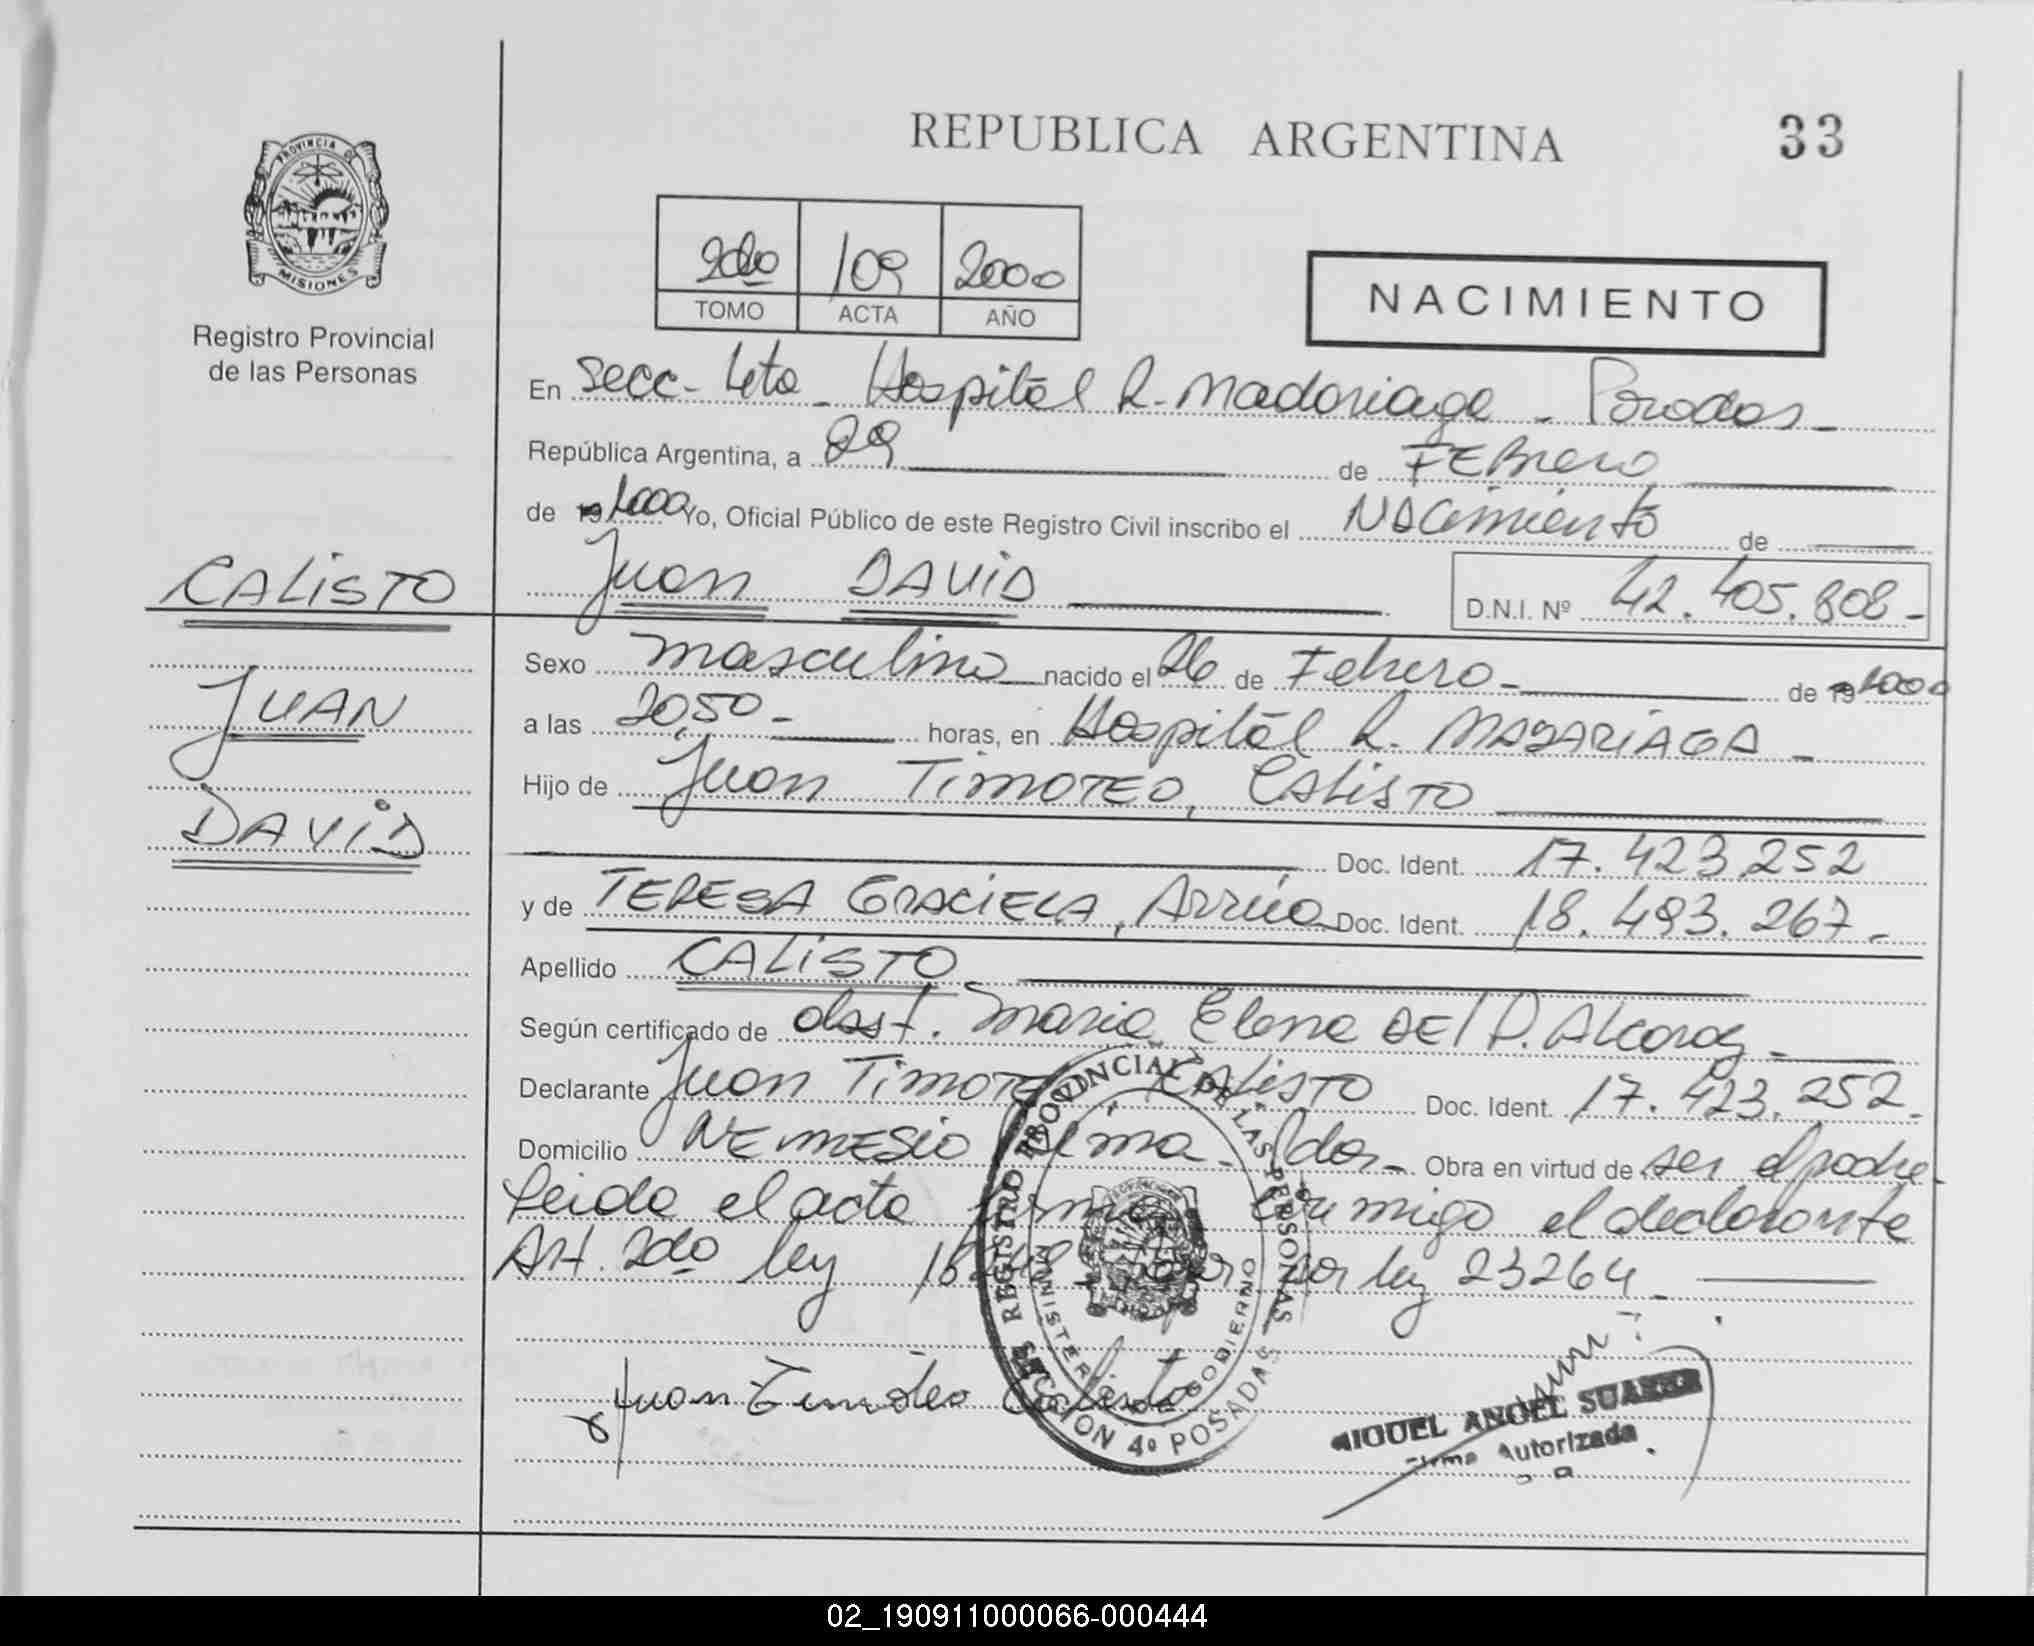 REPUBLICA ARGENTINA
33
PROVINCIA DE
MISIONES
Registro Provincial
de las Personas
2do 109 2000
TOMO ACTA AÑO
NACIMIENTO
En Secc- 4ta - Hospital R. Madariaga - Posadas -
República Argentina, a 29 de FEBrero
de 19 2000 Yo, Oficial Público de este Registro Civil inscribo el NACimiento de
CALISTO
Juan DAVID
D.N.I. Nº 42.405.808-
Sexo masculino nacido el 26 de Febrero - de 19 2000
JUAN
a las 20,50 - horas, en Hospital R. MADARIAGA -
Hijo de Juan TIMOTEO, CALISTO
DAVID
Doc. Ident. 17.423.252
y de TERESA GRACIELA, Arrúa Doc. Ident. 18.493.267.-
Apellido CALISTO
Según certificado de obst. Maria Elena DEl P. Alcaraz -
Declarante Juan TIMOTEO CALISTO Doc. Ident. 17.423.252.
Domicilio NEMESIO Pdas - Obra en virtud de ser el padre -
Leida el acta firma conmigo el declarante
Art. 2do ley por ley 23264 -
REGISTRO PROVINCIAL DE LAS PERSONAS
MINISTERIO DE GOBIERNO
SECCION 4º POSADAS
Juan Timoteo Calisto
MIGUEL ANGEL SUAREZ
Firma Autorizada
02_190911000066-000444